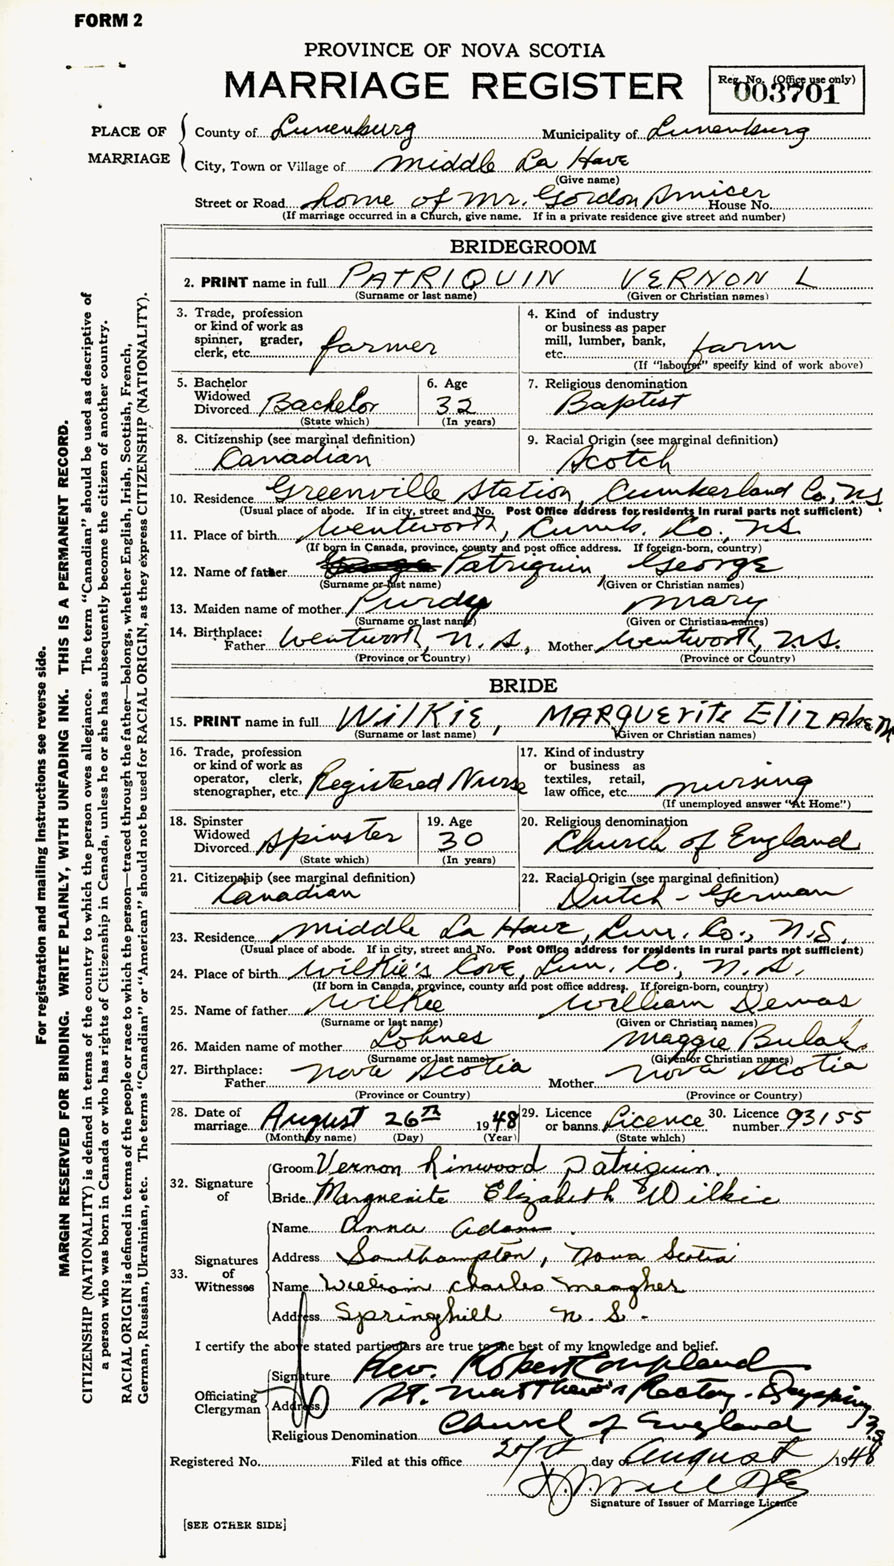 FORM 2
PROVINCE OF NOVA SCOTIA
MARRIAGE REGISTER
Reg. No. (Office use only)
003701
PLACE OF MARRIAGE
County of Lunenburg Municipality of Lunenburg
City, Town or Village of Middle La Have
(Give name)
Street or Road home of Mr. Gordon House No.
(If marriage occurred in a Church, give name. If in a private residence give street and number)
BRIDEGROOM
2. PRINT name in full PATRIQUIN VERNON L
(Surname or last name) (Given or Christian names)
3. Trade, profession or kind of work as spinner, grader, clerk, etc. farmer
4. Kind of industry or business as paper mill, lumber, bank, etc. farm
(If "labourer" specify kind of work above)
5. Bachelor Widowed Divorced Bachelor
(State which)
6. Age 32
(In years)
7. Religious denomination Baptist
8. Citizenship (see marginal definition) Canadian
9. Racial Origin (see marginal definition) Scotch
10. Residence Greenville Station, Cumberland Co, NS
(Usual place of abode. If in city, street and No. Post Office address for residents in rural parts not sufficient)
11. Place of birth Wentworth, Cumb. Co. NS.
(If born in Canada, province, county and post office address. If foreign-born, country)
12. Name of father Patriquin George
(Surname or last name) (Given or Christian names)
13. Maiden name of mother Purdy Mary
(Surname or last name) (Given or Christian names)
14. Birthplace: Father Wentworth, N.S., Mother Wentworth, N.S.
(Province or Country) (Province or Country)
BRIDE
15. PRINT name in full WILKIE, MARGUERITE ELIZABETH
(Surname or last name) (Given or Christian names)
16. Trade, profession or kind of work as operator, clerk, stenographer, etc. Registered Nurse
17. Kind of industry or business as textiles, retail, law office, etc. nursing
(If unemployed answer "At Home")
18. Spinster Widowed Divorced Spinster
(State which)
19. Age 30
(In years)
20. Religious denomination Church of England
21. Citizenship (see marginal definition) Canadian
22. Racial Origin (see marginal definition) Dutch - German
23. Residence Middle La Have, Lun. Co., N.S.
(Usual place of abode. If in city, street and No. Post Office address for residents in rural parts not sufficient)
24. Place of birth Wilkie's Cove, Lun. Co., N.S.
(If born in Canada, province, county and post office address. If foreign-born, country)
25. Name of father Wilkie William Demas
(Surname or last name) (Given or Christian names)
26. Maiden name of mother Lohnes Maggie Bulah
(Surname or last name) (Given or Christian names)
27. Birthplace: Father Nova Scotia Mother Nova Scotia
(Province or Country) (Province or Country)
28. Date of marriage August 26th 1948
(Month by name) (Day) (Year)
29. Licence or banns Licence
(State which)
30. Licence number 93155
32. Signature of
Groom Vernon Linwood Patriquin.
Bride Marguerite Elizabeth Wilkie
33. Signatures of Witnesses
Name Anna Adams
Address Southampton, Nova Scotia
Name William Charles Meagher
Address Springhill N.S.
I certify the above stated particulars are true to the best of my knowledge and belief.
Officiating Clergyman
Signature Rev. Robert Coupland
Address St. Matthew's Rectory.
Religious Denomination Church of England
Registered No. Filed at this office day of August 1948
Signature of Issuer of Marriage Licence
[SEE OTHER SIDE]
For registration and mailing instructions see reverse side.
MARGIN RESERVED FOR BINDING. WRITE PLAINLY, WITH UNFADING INK. THIS IS A PERMANENT RECORD.
CITIZENSHIP (NATIONALITY) is defined in terms of the country to which the person owes allegiance. The term "Canadian" should be used as descriptive of
a person who was born in Canada or who has rights of Citizenship in Canada, unless he or she has subsequently become the citizen of another country.
RACIAL ORIGIN is defined in terms of the people or race to which the person—traced through the father—belongs, whether English, Irish, Scottish, French,
German, Russian, Ukrainian, etc. The terms "Canadian" or "American" should not be used for RACIAL ORIGIN, as they express CITIZENSHIP (NATIONALITY).